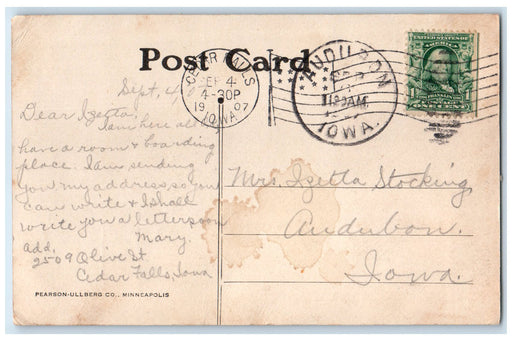 Post Card
CEDAR FALLS
SEP 4
4-30P
1907
IOWA
AUDUBON
IOWA.
UNITED STATES OF
AMERICA
ONE CENT
Sept, 4/07
Dear Izetta:
I am here all
have a room & boarding
place. I am sending
you my address, so you
can write & I shall
write you a letter soon
Mary.
add,
2509 Olive St
Cedar Falls, Iowa
PEARSON-ULLBERG CO., MINNEAPOLIS
Mrs. Izetta Stocking,
Audubon.
Iowa.